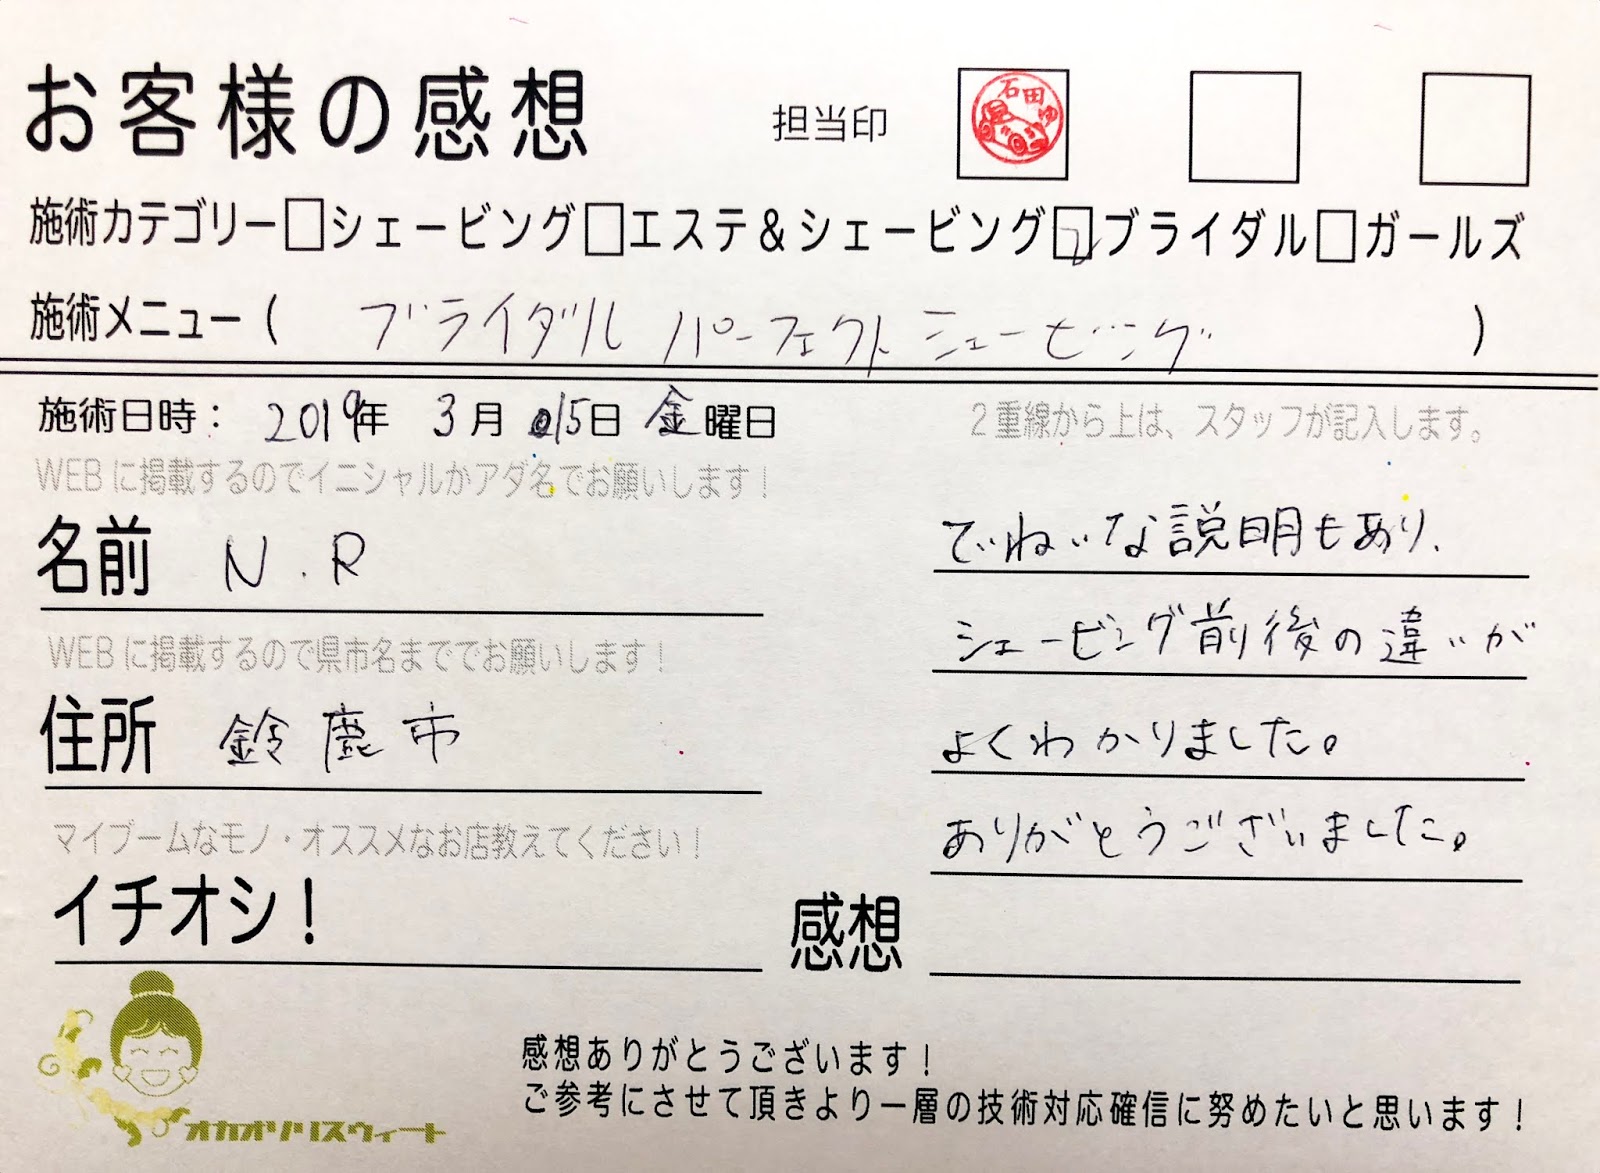 お客様の感想
担当印
石田
施術カテゴリー□シェービング□エステ＆シェービング☑ブライダル□ガールズ
施術メニュー（ ブライダル パーフェクトシェービング ）
施術日時： 2019年 3月 15日 金曜日
2重線から上は、スタッフが記入します。
WEBに掲載するのでイニシャルかアダ名でお願いします！
名前 N.R
WEBに掲載するので県市名まででお願いします！
住所 鈴鹿市
マイブームなモノ・オススメなお店教えてください！
イチオシ！
感想
ていねいな説明もあり、
シェービング前後の違いが
よくわかりました。
ありがとうございました。
オカオソリスウィート
感想ありがとうございます！
ご参考にさせて頂きより一層の技術対応確信に努めたいと思います！